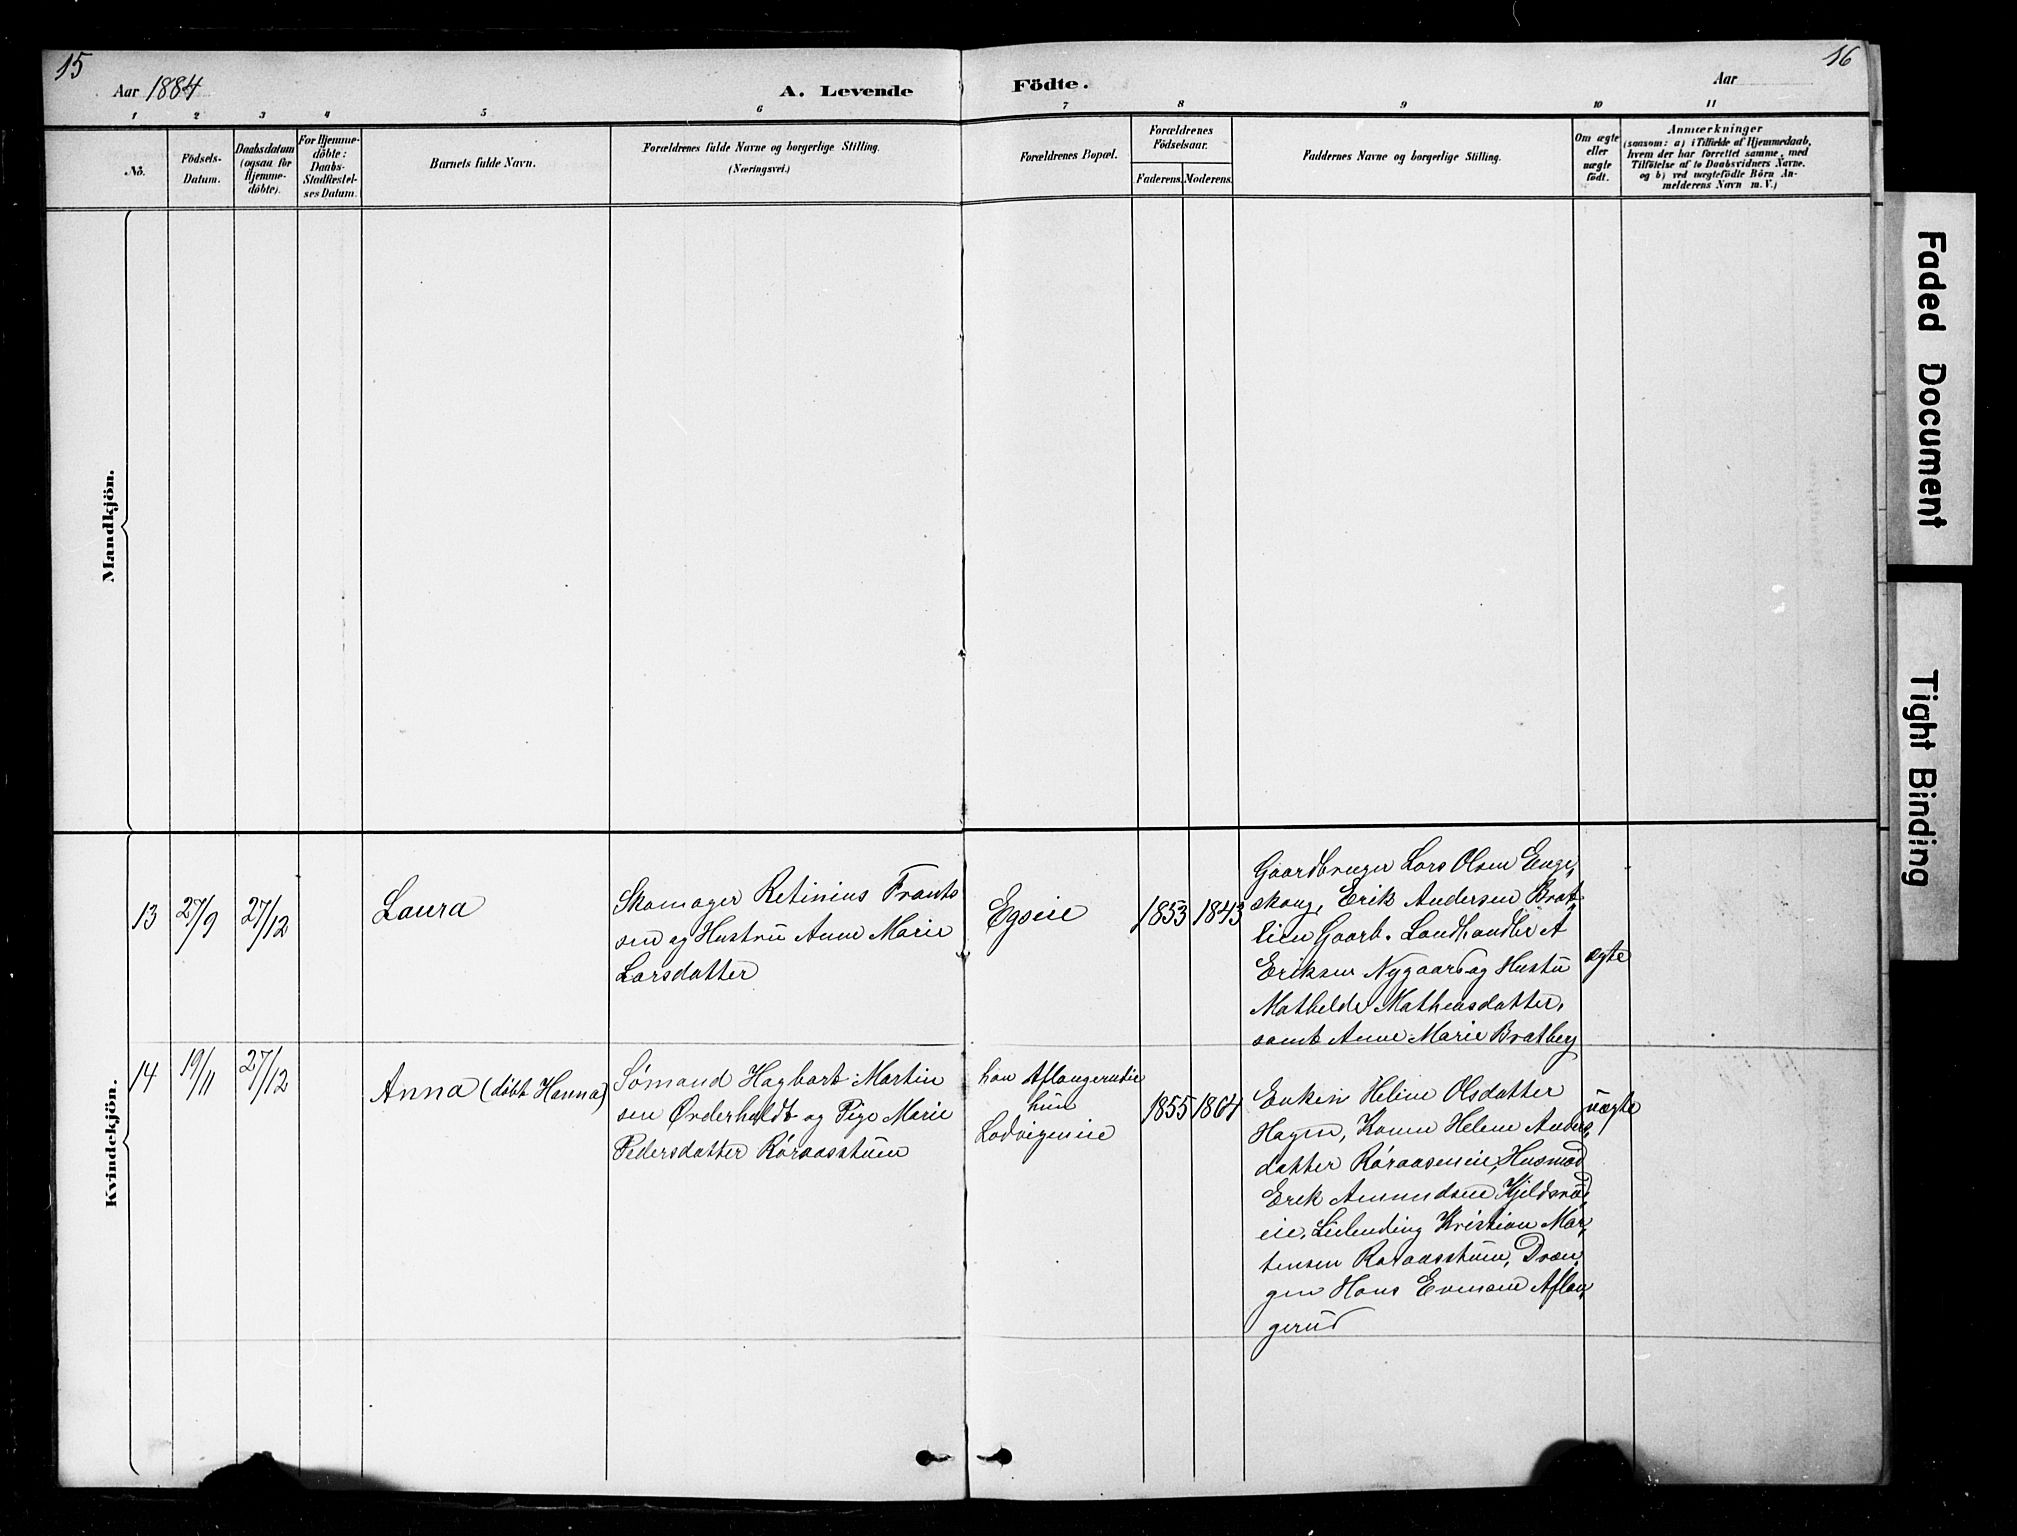 15
Aar 1884
A. Levende
Födte.
16
Aar
1 2 3 4 5 6 7 8 9 10 11
Nö.
Födsels-
Datum.
Daabsdatum
(ogsaa for
Hjemme-
döbte).
For Hjemme-
döbte:
Daabs-
Stadfæstel-
ses Datum.
Barnets fulde Navn.
Forældrenes fulde Navne og borgerlige Stilling.
(Næringsvei.)
Forældrenes Bopæl.
Forældrenes
Födselsaar.
Faderens.
Moderens.
Faddernes Navne og borgerlige Stilling.
Om ægte
eller
uægte
födt.
Anmærkninger
(saasom: a) i Tilfælde af Hjemmedaab,
hvem der har forrettet samme, med
Tilföielse af to Daabsvidners Navne.
og b) ved uægtefödte Börn An-
melderens Navn m. V.)
Mandkjön.
Kvindekjön.
13
27/9
27/12
Laura
Skomager Retinius Frants
sen og Hustru Anne Marie
Larsdatter
Egseie
1853
1843
Gaardbruger Lars Olsen Enge,
skaug, Erik Andersen Brat,
lien Gaarb. Landhandler A
Eriksen Nygaard og Hustru
Mathilde Matheasdatter,
samt Anne Marie Bratberg
ægte
14
19/11
27/12
Anna (døbt Hanna)
Sømand Hagbart Martin
sen Ørderholdt og Pige Marie
Pedersdatter Røraasstuen
han Aflangerudeie
hun
Lodvigeneie
1855
1864
Enken Helene Olsdatter
Hagen, Konen Helene Anders,
datter Røraaseneie, Husmad
Erik Amundsen Kjeldsrød,
eie, Leilending Kristian Mar,
tensen Røraasstuen, Dræn,
gen Hans Evensen Aflan,
gerud
uægte
Faded Document
Tight Binding